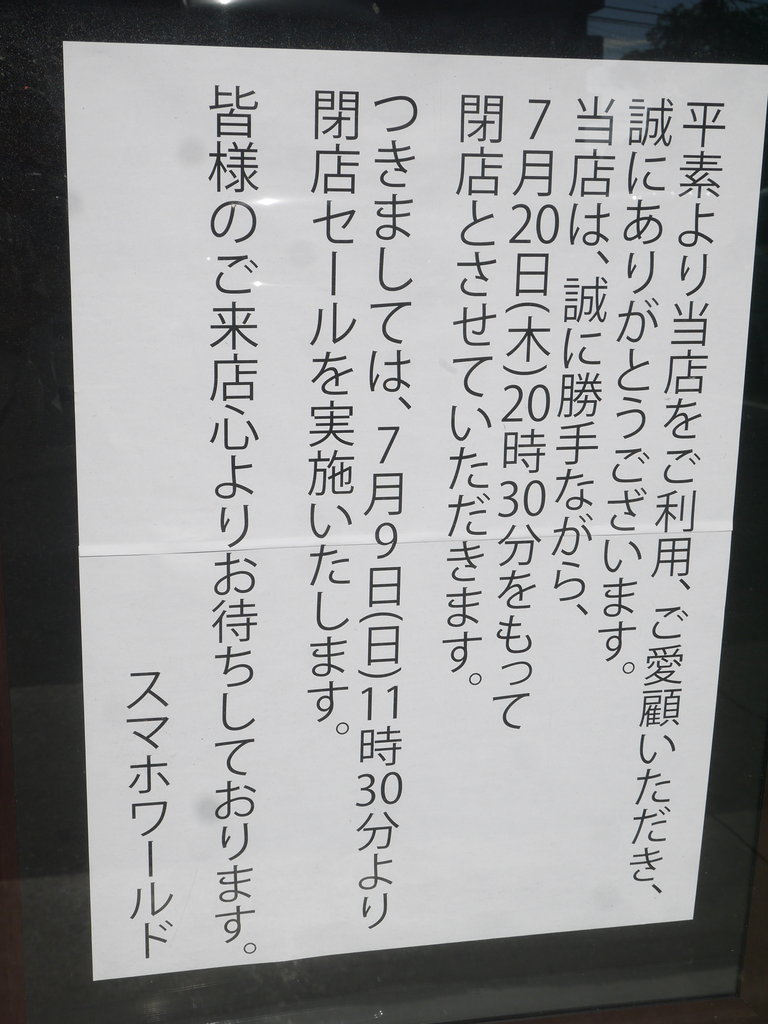 平素より当店をご利用、ご愛顧いただき、
誠にありがとうございます。
当店は、誠に勝手ながら、
7月20日(木)20時30分をもって
閉店とさせていただきます。
つきましては、7月9日(日)11時30分より
閉店セールを実施いたします。
皆様のご来店心よりお待ちしております。
スマホワールド